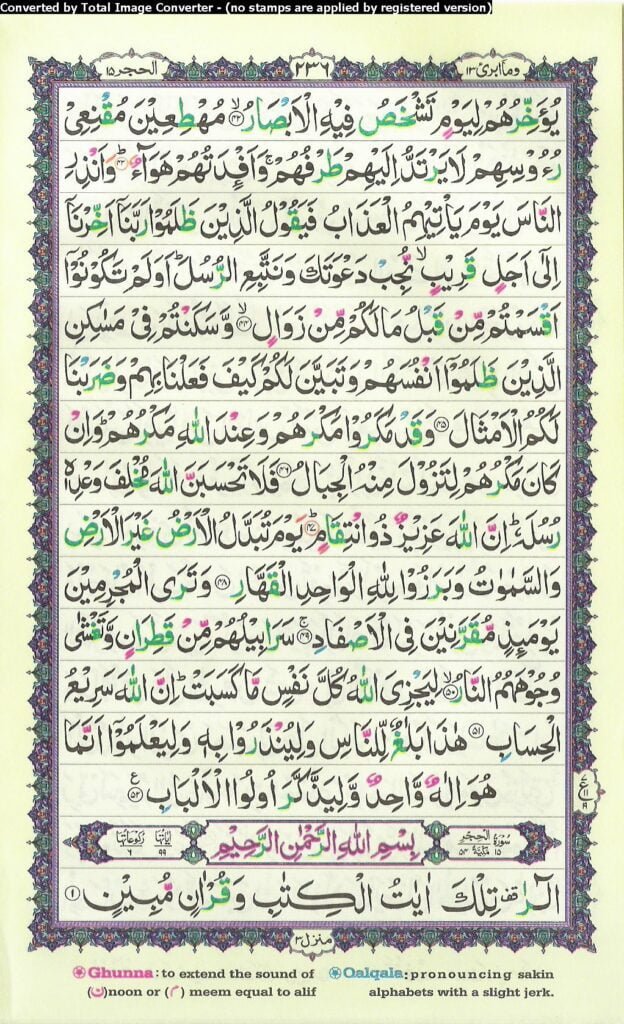 Converted by Total Image Converter - (no stamps are applied by registered version)
وما ابرئ ١٣
٢٣٦
الحجر ١٥
يُؤَخِّرُهُمْ لِيَوْمٍ تَشْخَصُ فِيْهِ الْاَبْصَارُ ۙ﴿۴۲﴾ مُهْطِعِيْنَ مُقْنِعِيْ
رُءُوْسِهِمْ لَا يَرْتَدُّ اِلَيْهِمْ طَرْفُهُمْ ۚ وَاَفْـِٕدَتُهُمْ هَوَآءٌ ؕ﴿۴۳﴾ وَاَنْذِرِ
النَّاسَ يَوْمَ يَاْتِيْهِمُ الْعَذَابُ فَيَقُوْلُ الَّذِيْنَ ظَلَمُوْا رَبَّنَاۤ اَخِّرْنَاۤ
اِلٰۤى اَجَلٍ قَرِيْبٍ ۙ نُّجِبْ دَعْوَتَكَ وَنَتَّبِعِ الرُّسُلَ ؕ اَوَلَمْ تَكُوْنُوْۤا
اَقْسَمْتُمْ مِّنْ قَبْلُ مَا لَكُمْ مِّنْ زَوَالٍ ۙ﴿۴۴﴾ وَّسَكَنْتُمْ فِيْ مَسٰكِنِ
الَّذِيْنَ ظَلَمُوْۤا اَنْفُسَهُمْ وَتَبَيَّنَ لَكُمْ كَيْفَ فَعَلْنَا بِهِمْ وَضَرَبْنَا
لَكُمُ الْاَمْثَالَ ﴿۴۵﴾ وَقَدْ مَكَرُوْا مَكْرَهُمْ وَعِنْدَ اللّٰهِ مَكْرُهُمْ ؕ وَاِنْ
كَانَ مَكْرُهُمْ لِتَزُوْلَ مِنْهُ الْجِبَالُ ﴿۴۶﴾ فَلَا تَحْسَبَنَّ اللّٰهَ مُخْلِفَ وَعْدِهٖ
رُسُلَهٗ ؕ اِنَّ اللّٰهَ عَزِيْزٌ ذُو انْتِقَامٍ ؕ﴿۴۷﴾ يَوْمَ تُبَدَّلُ الْاَرْضُ غَيْرَ الْاَرْضِ
وَالسَّمٰوٰتُ وَبَرَزُوْا لِلّٰهِ الْوَاحِدِ الْقَهَّارِ ﴿۴۸﴾ وَتَرَى الْمُجْرِمِيْنَ
يَوْمَئِذٍ مُّقَرَّنِيْنَ فِي الْاَصْفَادِ ۚ﴿۴۹﴾ سَرَابِيْلُهُمْ مِّنْ قَطِرَانٍ وَّتَغْشٰى
وُجُوْهَهُمُ النَّارُ ۙ﴿۵۰﴾ لِيَجْزِيَ اللّٰهُ كُلَّ نَفْسٍ مَّا كَسَبَتْ ؕ اِنَّ اللّٰهَ سَرِيْعُ
الْحِسَابِ ﴿۵۱﴾ هٰذَا بَلٰغٌ لِّلنَّاسِ وَلِيُنْذَرُوْا بِهٖ وَلِيَعْلَمُوْۤا اَنَّمَا
هُوَ اِلٰهٌ وَّاحِدٌ وَّلِيَذَّكَّرَ اُولُوا الْاَلْبَابِ ﴿۵۲﴾ ع
سُوْرَةُ الْحِجْرِ ١٥ مَكِّيَّةٌ ٥٤
بِسْمِ اللّٰهِ الرَّحْمٰنِ الرَّحِيْمِ
اٰيَاتُهَا ٩٩ رُكُوْعَاتُهَا ٦
الٓرٰ ۟ تِلْكَ اٰيٰتُ الْكِتٰبِ وَقُرْاٰنٍ مُّبِيْنٍ ﴿۱﴾
منزل ٣
Ghunna: to extend the sound of
(ن)noon or (م) meem equal to alif
Qalqala: pronouncing sakin
alphabets with a slight jerk.